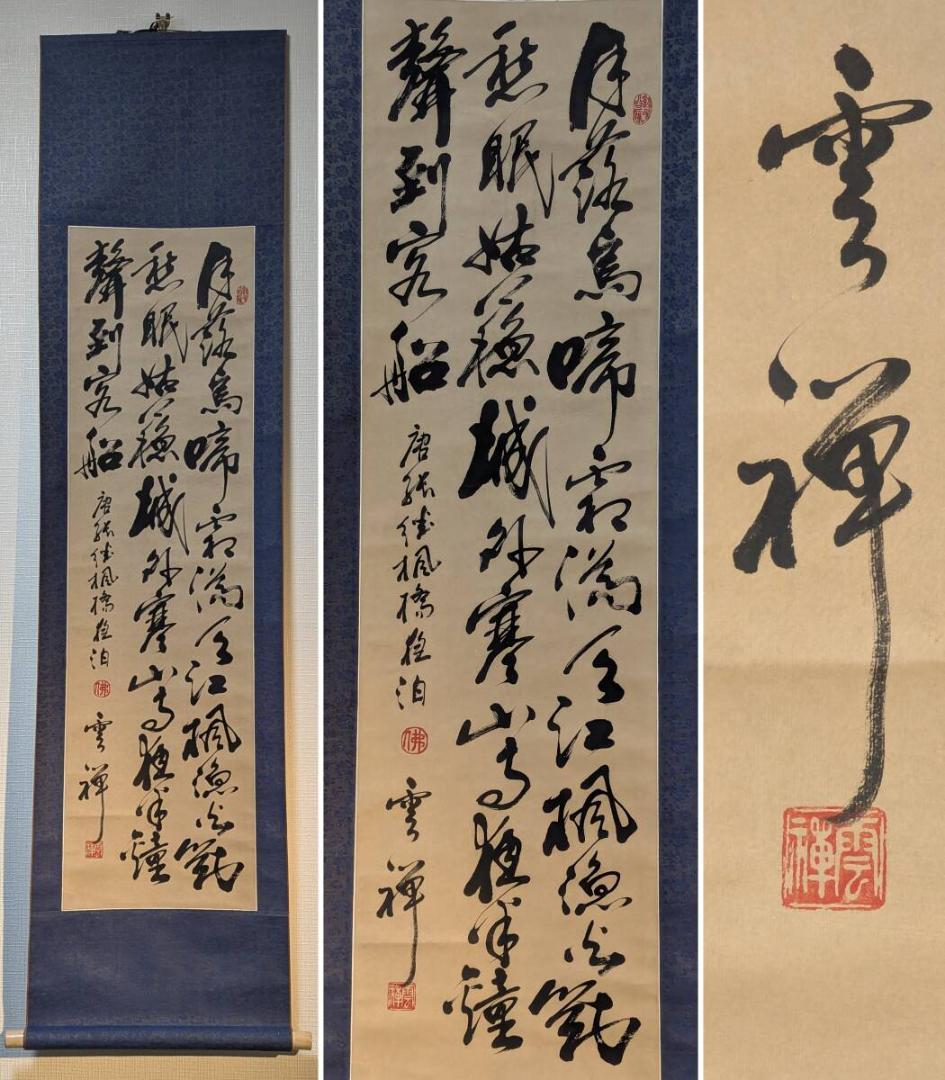 月落烏啼霜滿天江楓漁火對
愁眠姑蘓城外寒山寺夜半鐘
聲到客船
唐張継楓橋夜泊
佛
雲禅
雲禪
月落烏啼霜滿天江楓漁火對
愁眠姑蘓城外寒山寺夜半鐘
聲到客船
唐張継楓橋夜泊
佛
雲禅
雲禪
雲禅
雲禪